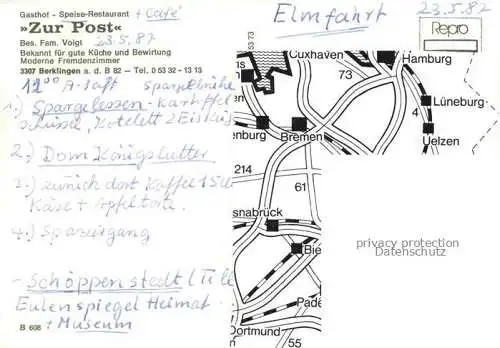 Gasthof - Speise-Restaurant + Café
»Zur Post« 23.5.87
Bes. Fam. Voigt
Bekannt für gute Küche und Bewirtung
Moderne Fremdenzimmer
3307 Berklingen a. d. B 82 – Tel. 0 53 32 - 13 13
Elmfahrt
23.5.87
Repro
12⁰⁰
1.) Spargelessen - Kartoffel
2 Eiskug
2.) Dom Königslutter
3.) zurück dort Kaffee +
Käse + Apfeltorte
4.) Spaziergang
- Schöppenstedt (Till
Eulenspiegel Heimat
: Museum
B 608
53 73
Cuxhaven
73
Hamburg
Lüneburg
4
Uelzen
enburg
Bremen
214
61
snabrück
Bie
Pade
Dortmund
55
privacy protection
Datenschutz